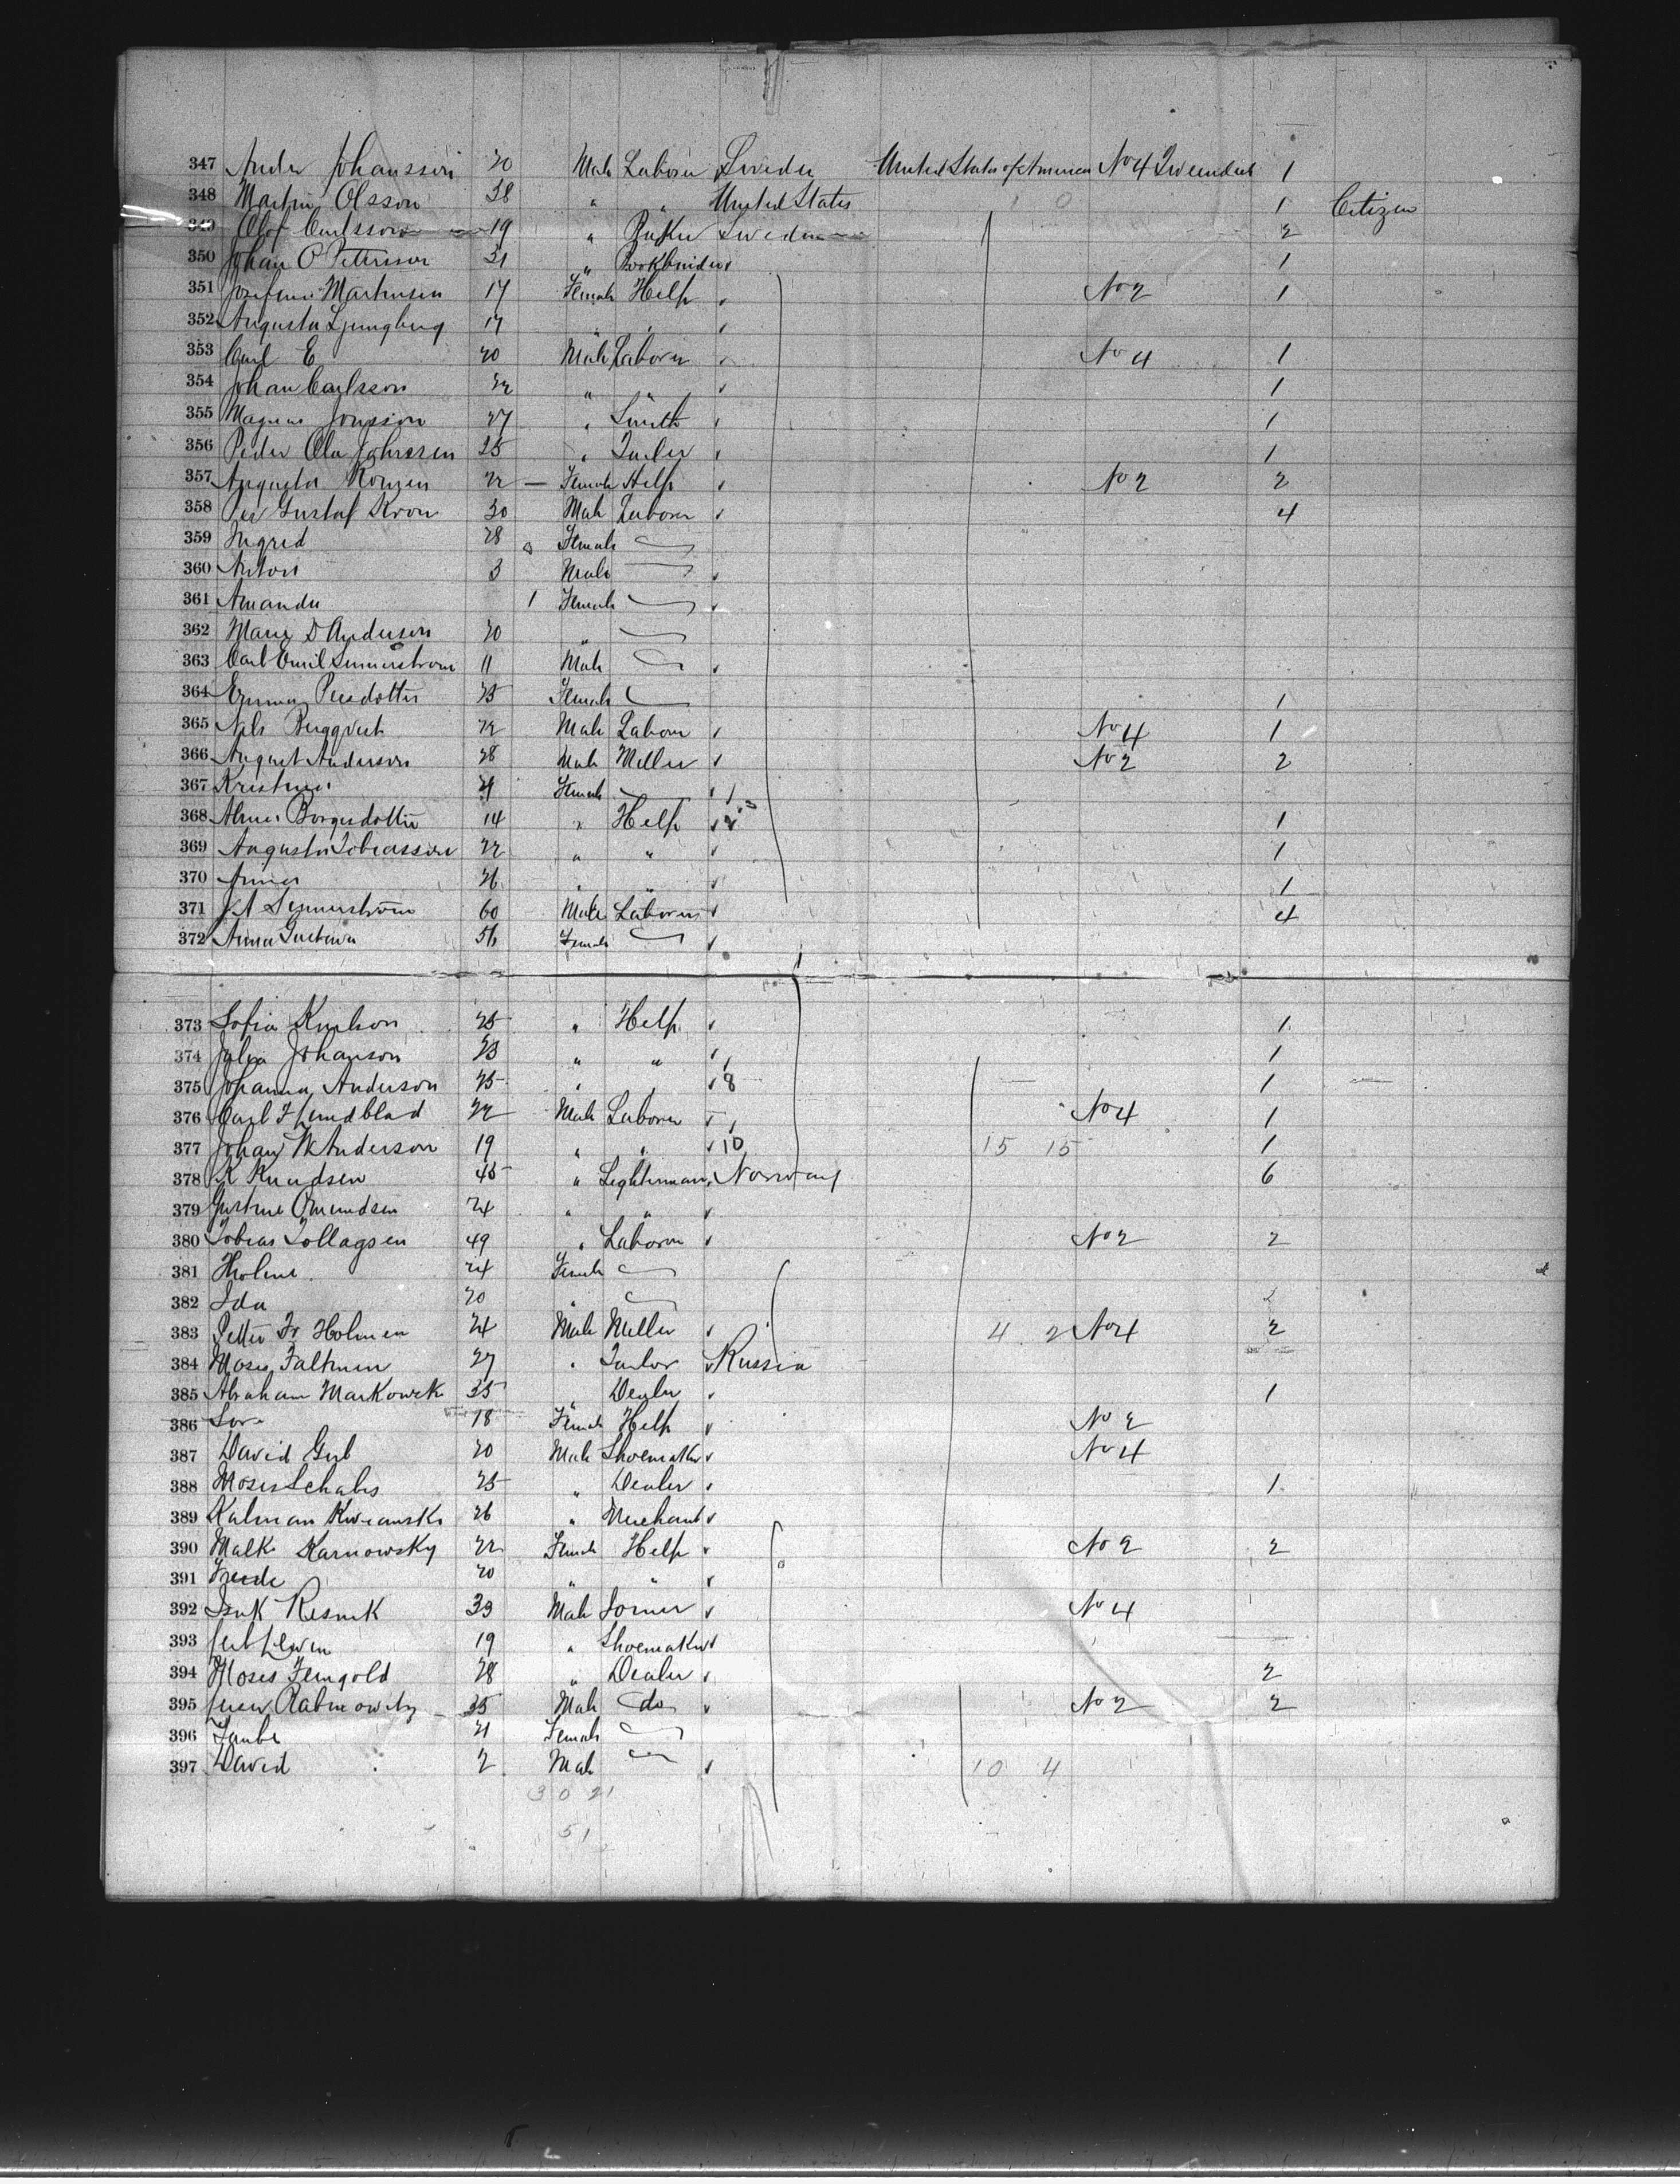 347 Ander Johansson 20 Male Laborer Sweden United States of America No 4 Tweendeck 1
348 Martin Olsson 38 " " United States 1 0 1 Citizen
349 Olof Carlsson 19 " Baker Sweden 2
350 Johan O Petersson 31 " Bookbinder 1
351 Martinsen 17 Female Help No 2 1
352 Augusta Ljungberg 17 " "
353 Carl E 20 Male Laborer No 4 1
354 Johan Carlsson 22 " " 1
355 Magnus Jonsson 27 " Smith 1
356 Peder Ola Johnssen 25 " 1
357 Augusta 22 — Female Help No 2 2
358 Per Gustaf Kron 30 Male Laborer 4
359 Ingrid 28 Female
360 Anton 3 Male
361 Amanda 1 Female
362 D Anderson 20 "
363 Carl Emil 11 Male
364 Persdotter 25 Female 1
365 Nils Bergqvist 22 Male Laborer No 4 1
366 August Anderson 28 Male Miller No 2 2
367 Female
368 14 " Help 1
369 Augusta Tobiasson 22 " " 1
370 Anna 26 " " 1
371 60 Male Laborer 4
372 Anna 56 Female
373 Sofia 25 " Help 1
374 Johanson 23 " " 1
375 Johanna Anderson 25 " 8 1
376 Carl F Lindblad 22 Male Laborer No 4 1
377 Johan W Anderson 19 " " 10 15 15 1
378 K Knudsen 45 " Lighterman Norway 6
379 24 " "
380 Tobias Tollagsen 49 " Laborer No 2 2
381 24 Female
382 Ida 20 "
383 Petter Fr Holmen 24 Male Miller 4 2 No 4 2
384 Moses 27 " Tailor Russia
385 Abraham 35 " Dealer 1
386 18 Female Help No 2
387 David 20 Male Shoemaker No 4
388 Moses 25 " Dealer 1
389 Kalman 26 " Merchant
390 Malke Karnowsky 22 Female Help No 2 2
391 20 " "
392 Resnik 33 Male Joiner No 4
393 19 " Shoemaker
394 Moses Feingold 28 " Dealer 2
395 Rabinowitz 35 Male do No 2 2
396 Taube 21 Female
397 David 2 Male 10 4
30 21
51